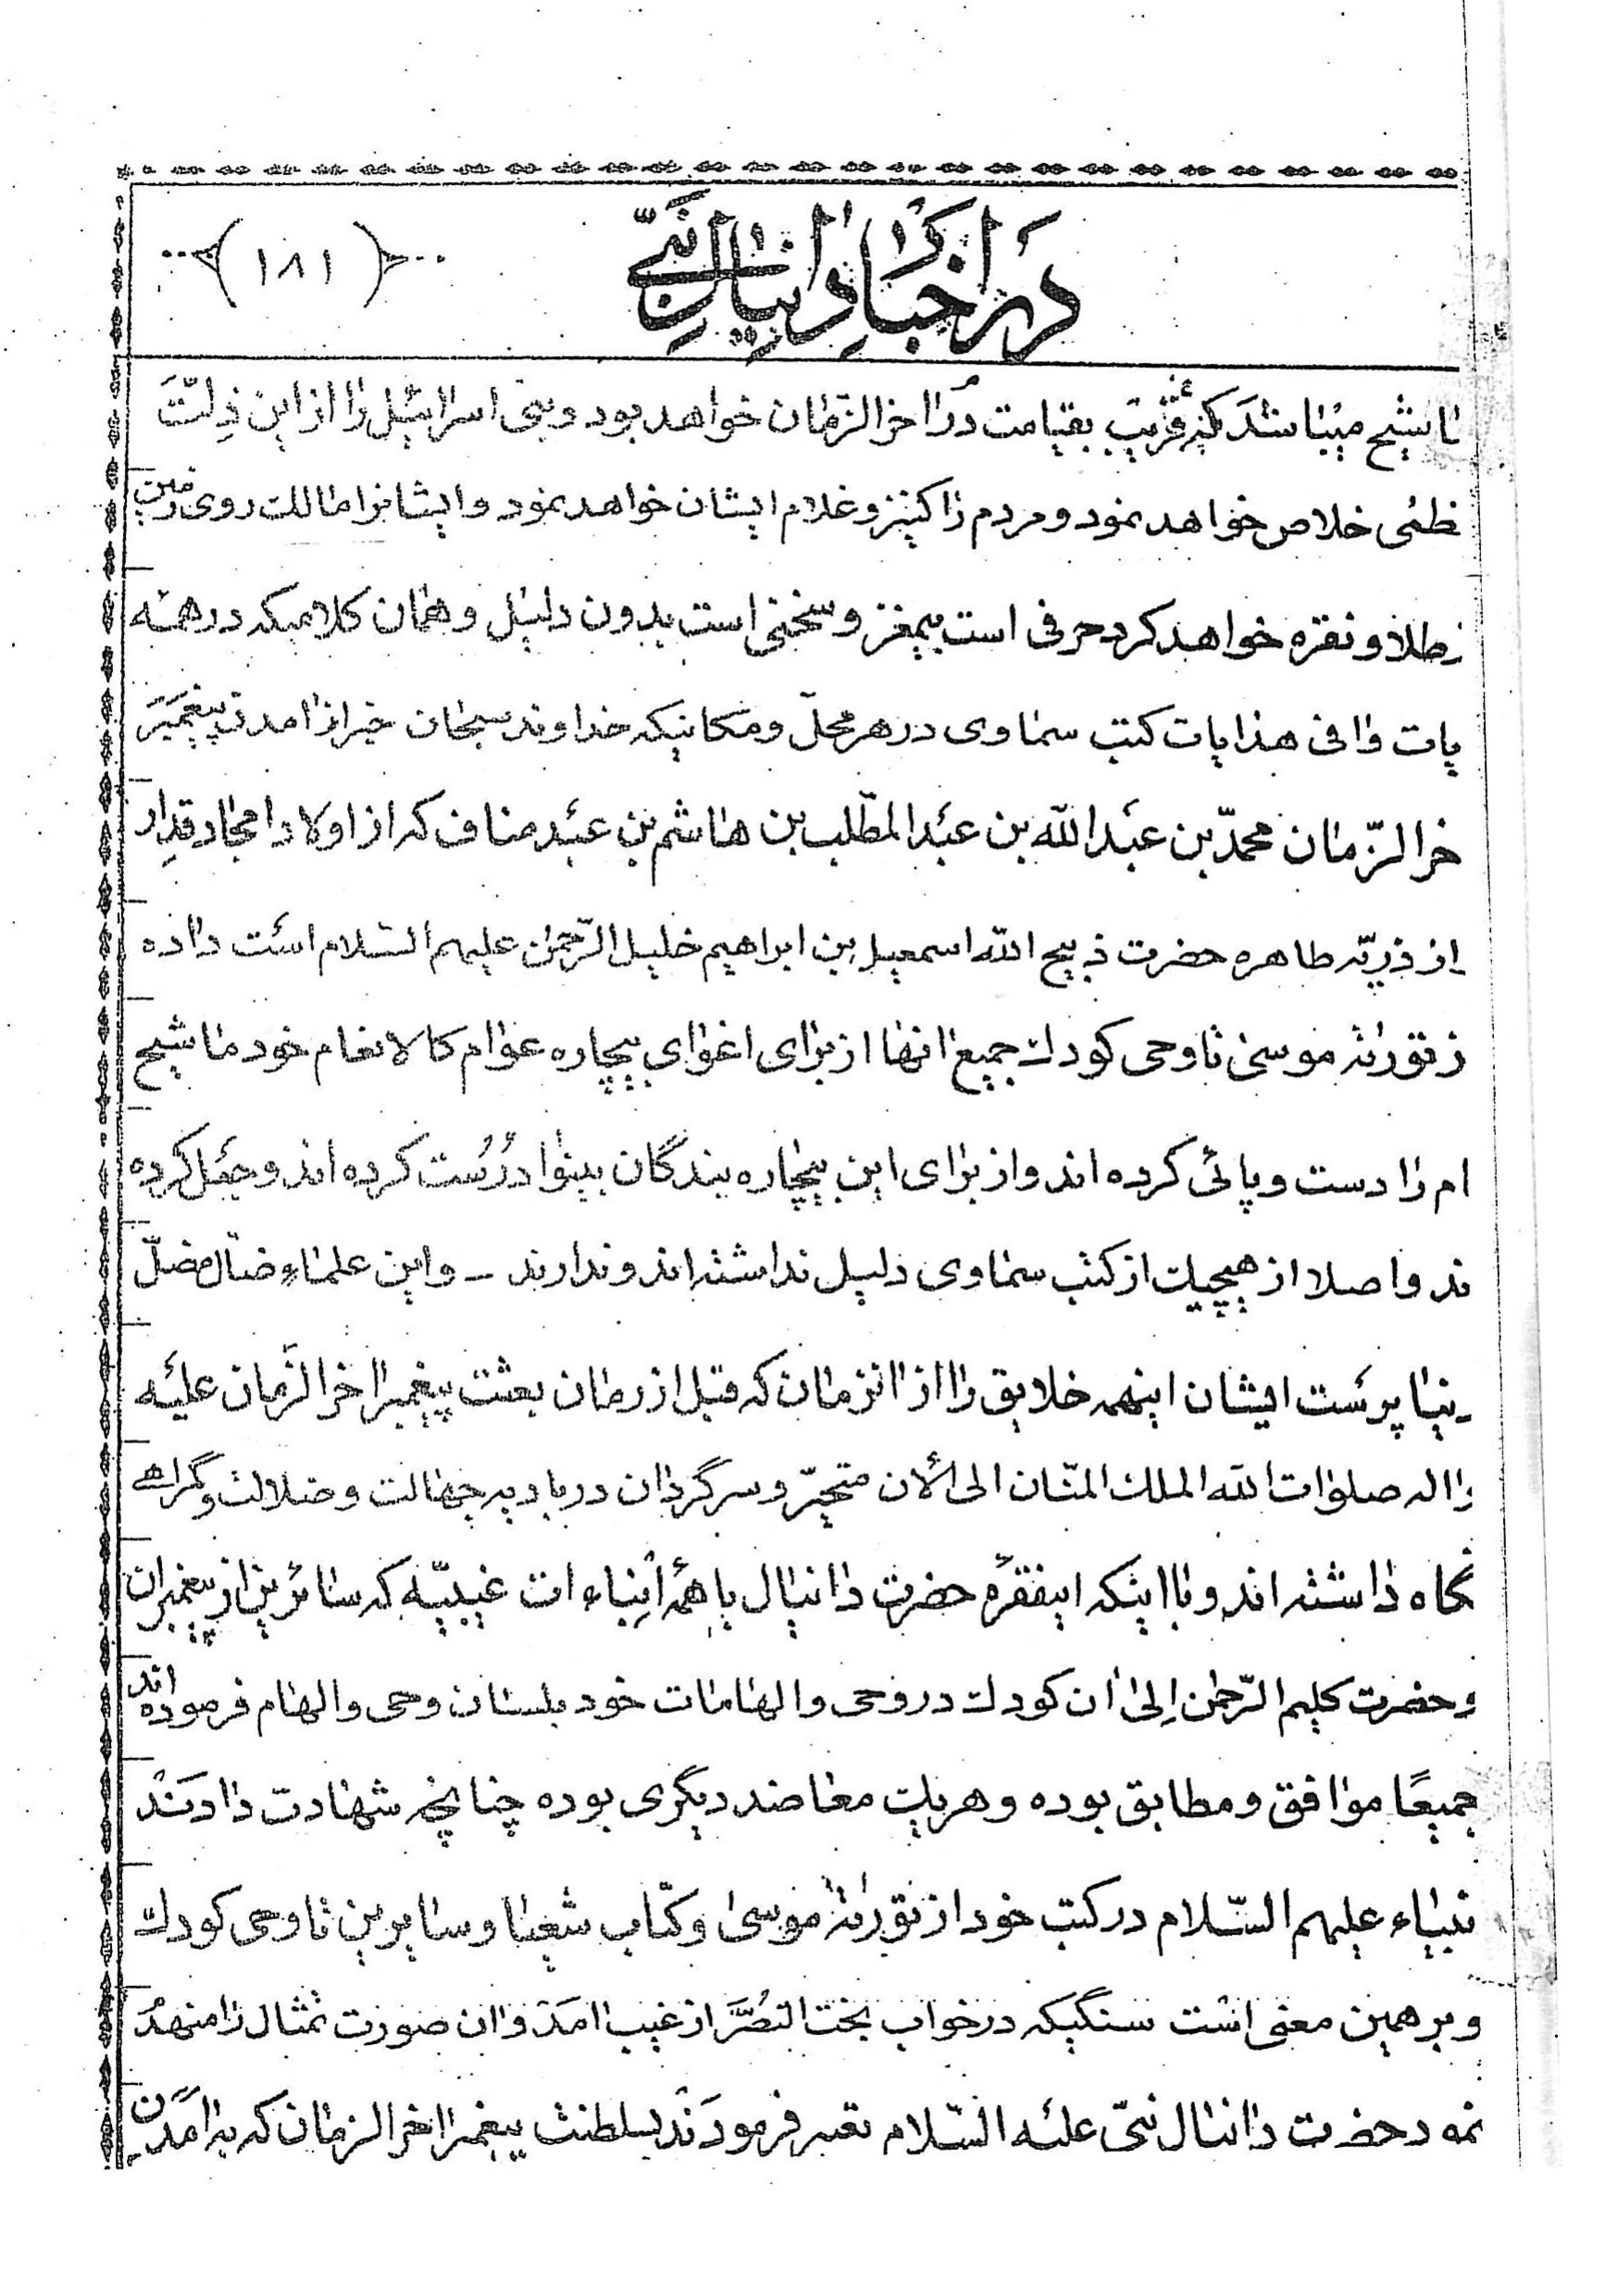 در اخبار دانیال نبی
(۱۸۱)
ماشیح میباشد که قریب بقیامت در اخرالزمان خواهد بود و بنی اسرائیل را از این ذلّت
خلاص خواهد نمود و مردم را کنیز و غلام ایشان خواهد نمود و ایشانرا مالک روی زمین
طلا و نقره خواهد کرد حرفی است بیمغز و سخنی است بدون دلیل و همان کلامیکه در همه
یات وافی هدایات کتب سماوی در هر محلّ و مکانیکه خداوند سبحان خبر از امدن پیغمبر
خرالزّمان محمّد بن عبدالله بن عبدالمطّلب بن هاشم بن عبدمناف که از اولاد امجاد قدار
از ذریّه طاهره حضرت ذبیح الله اسمعیل بن ابراهیم خلیل الرّحمن علیهم السّلام است داده
ز تورٰیة موسی تا وحی کودک جمیع انها از برای اغوای بیچاره عوام کالانعام خود ماشیح
ام را دست و پائی کرده اند و از برای این بیچاره بندگان بینوا درست کرده اند و جعل کرده
ند و اصلا از هیچیک از کتب سماوی دلیل نداشته اند و ندارند - و این علماء ضالّ مضلّ
نیا پرست ایشان اینهمه خلایق را از انزمان که قبل از زمان بعثت پیغمبر اخرالزّمان علیه
واله صلوات الله الملک المنّان الی الآن متحیّر و سرگردان در بادیه جهالت و ضلالت و گمراهی
نگاه داشته اند و با اینکه اینفقره حضرت دانیال با همه انباءات غیبیّه که سائرین از پیغمبران
و حضرت کلیم الرّحمن اِلیٰ ان کودک در وحی و الهامات خود بلسان وحی و الهام فرموده اند
جمیعًا موافق و مطابق بوده و هریک معاضد دیگری بوده چنانچه شهادت دادند
نبیاء علیهم السّلام در کتب خود از تورٰیة موسیٰ و کتاب شعیا و سایرین تا وحی کودک
و بر همین معنی است سنگیکه در خواب بخت النصر از غیب امد و ان صورت تمثال را منهد
نمود حضرت دانیال نبیّ علیه السّلام تعبیر فرمودند بسلطنت پیغمبر اخرالزمان که با امدن